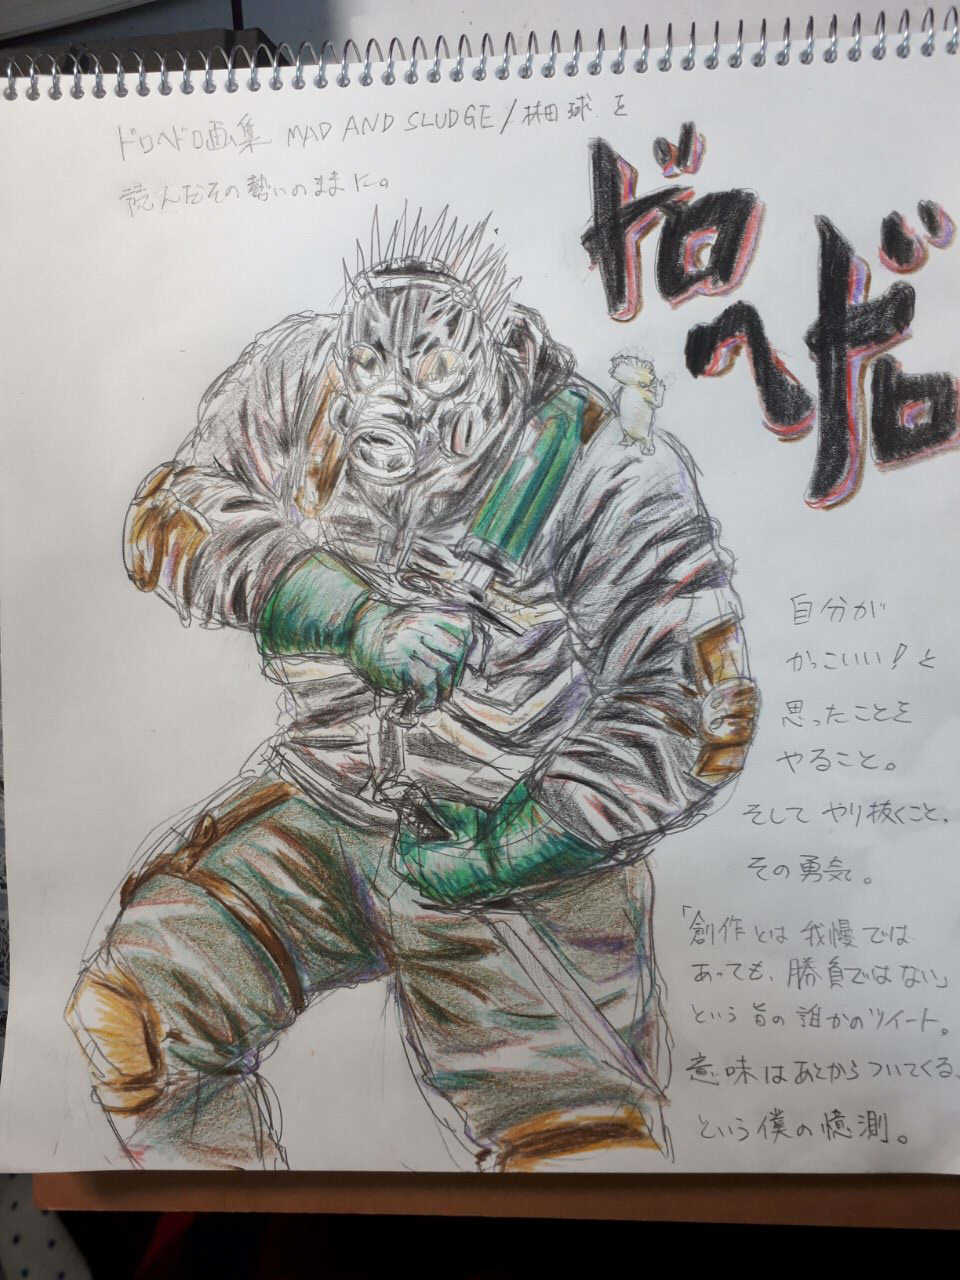 ドロヘドロ画集 MAD AND SLUDGE/林田球を
読んだその勢いのままに。
ドロ
ヘドロ
自分が
かっこいい!と
思ったことを
やること。
そして やり抜くこと、
その勇気。
「創作とは 我慢では
あっても、勝負ではない」
という旨の誰かのツイート。
意味はあとからついてくる、
という僕の憶測。